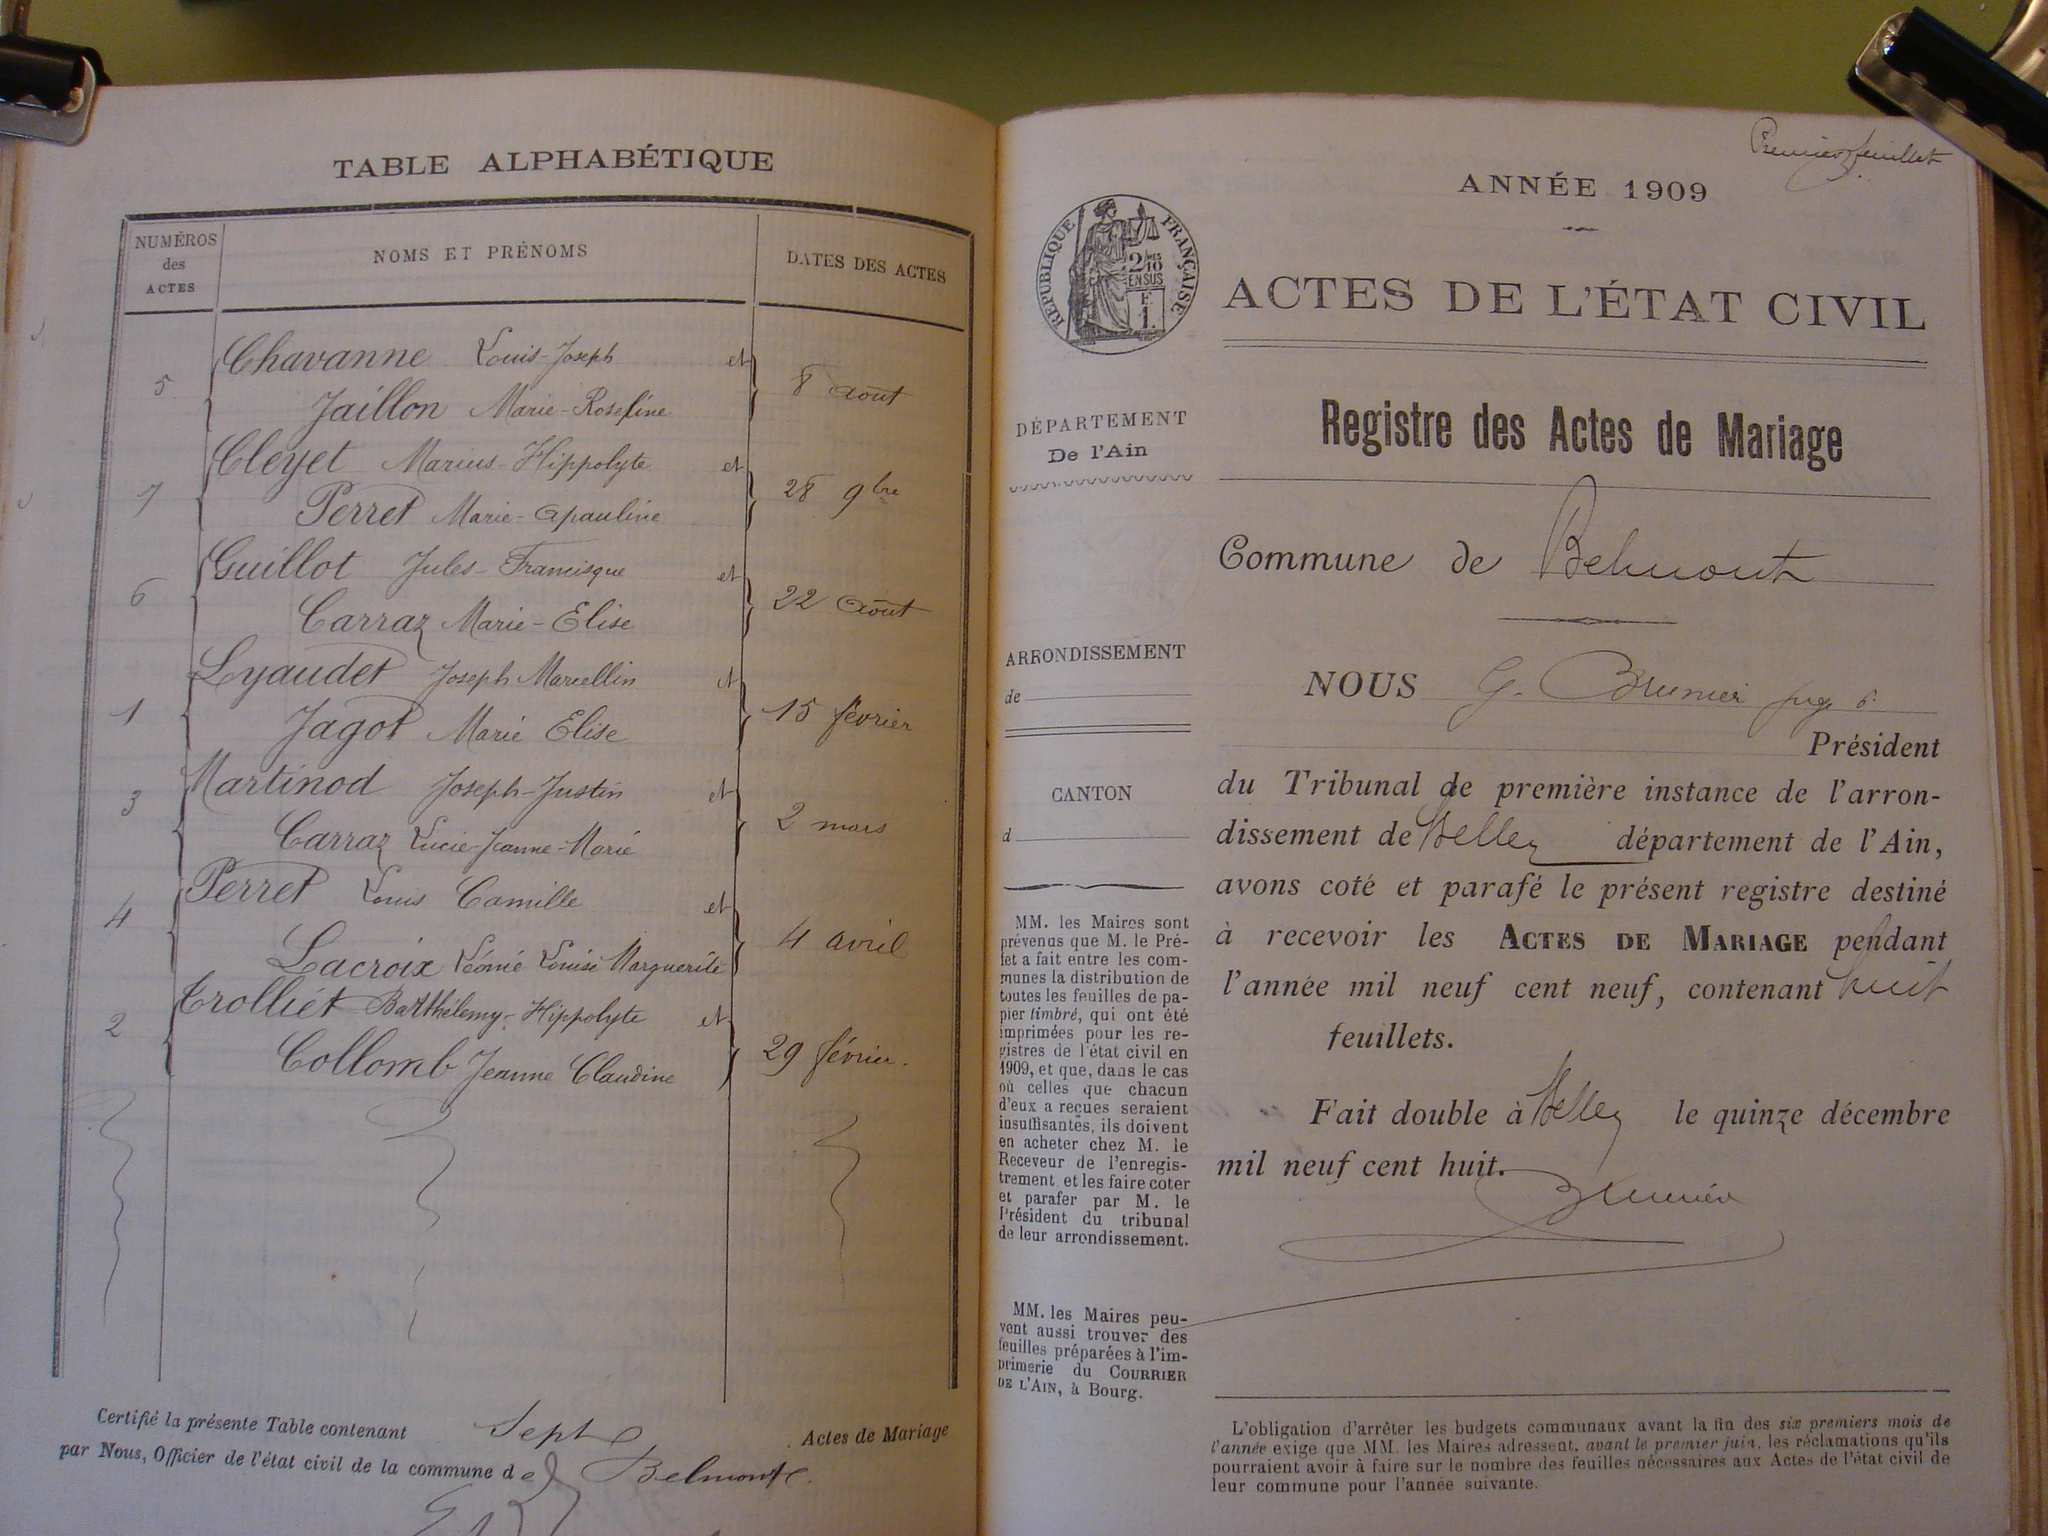 TABLE ALPHABÉTIQUE
NUMÉROS
des
ACTES
NOMS ET PRÉNOMS
DATES DES ACTES
Chavanne Louis-Joseph et
5 8 août
Jaillon Marie-Roseline
Cleyet Marius-Hippolyte et
7 28 9bre
Perret Marie-Apauline
Guillot Jules-Francisque et
6 22 août
Carraz Marie-Elise
Lyaudet Joseph Marcellin et
1 15 février
Jagot Marie Elise
Martinod Joseph-Justin et
3 2 mars
Carraz Lucie-Jeanne-Marie
Perret Louis Camille et
4 4 avril
Lacroix Léonie Louise Marguerite
Trolliet Barthélemy-Hippolyte et
2 29 février.
Collomb Jeanne Claudine
Certifié la présente Table contenant Sept Actes de Mariage
par Nous, Officier de l'état civil de la commune de Belmont.
Premier feuillet
ANNÉE 1909
RÉPUBLIQUE FRANÇAISE
2/10
EN SUS
1.
ACTES DE L'ÉTAT CIVIL
DÉPARTEMENT
De l'Ain
Registre des Actes de Mariage
Commune de Belmont
ARRONDISSEMENT
de
CANTON
d
MM. les Maires sont
prévenus que M. le Pré-
fet a fait entre les com-
munes la distribution de
toutes les feuilles de pa-
pier timbré, qui ont été
imprimées pour les re-
gistres de l'état civil en
1909, et que, dans le cas
où celles que chacun
d'eux a reçues seraient
insuffisantes, ils doivent
en acheter chez M. le
Receveur de l'enregis-
trement et les faire coter
et parafer par M. le
Président du tribunal
de leur arrondissement.
MM. les Maires peu-
vent aussi trouver des
feuilles préparées à l'im-
primerie du COURRIER
DE L'AIN, à Bourg.
NOUS G. Brunier juge
Président
du Tribunal de première instance de l'arron-
dissement de Belley département de l'Ain,
avons coté et parafé le présent registre destiné
à recevoir les ACTES DE MARIAGE pendant
l'année mil neuf cent neuf, contenant huit
feuillets.
Fait double à Belley le quinze décembre
mil neuf cent huit.
Brunier
L'obligation d'arrêter les budgets communaux avant la fin des six premiers mois de
l'année exige que MM. les Maires adressent, avant le premier juin, les réclamations qu'ils
pourraient avoir à faire sur le nombre des feuilles nécessaires aux Actes de l'état civil de
leur commune pour l'année suivante.